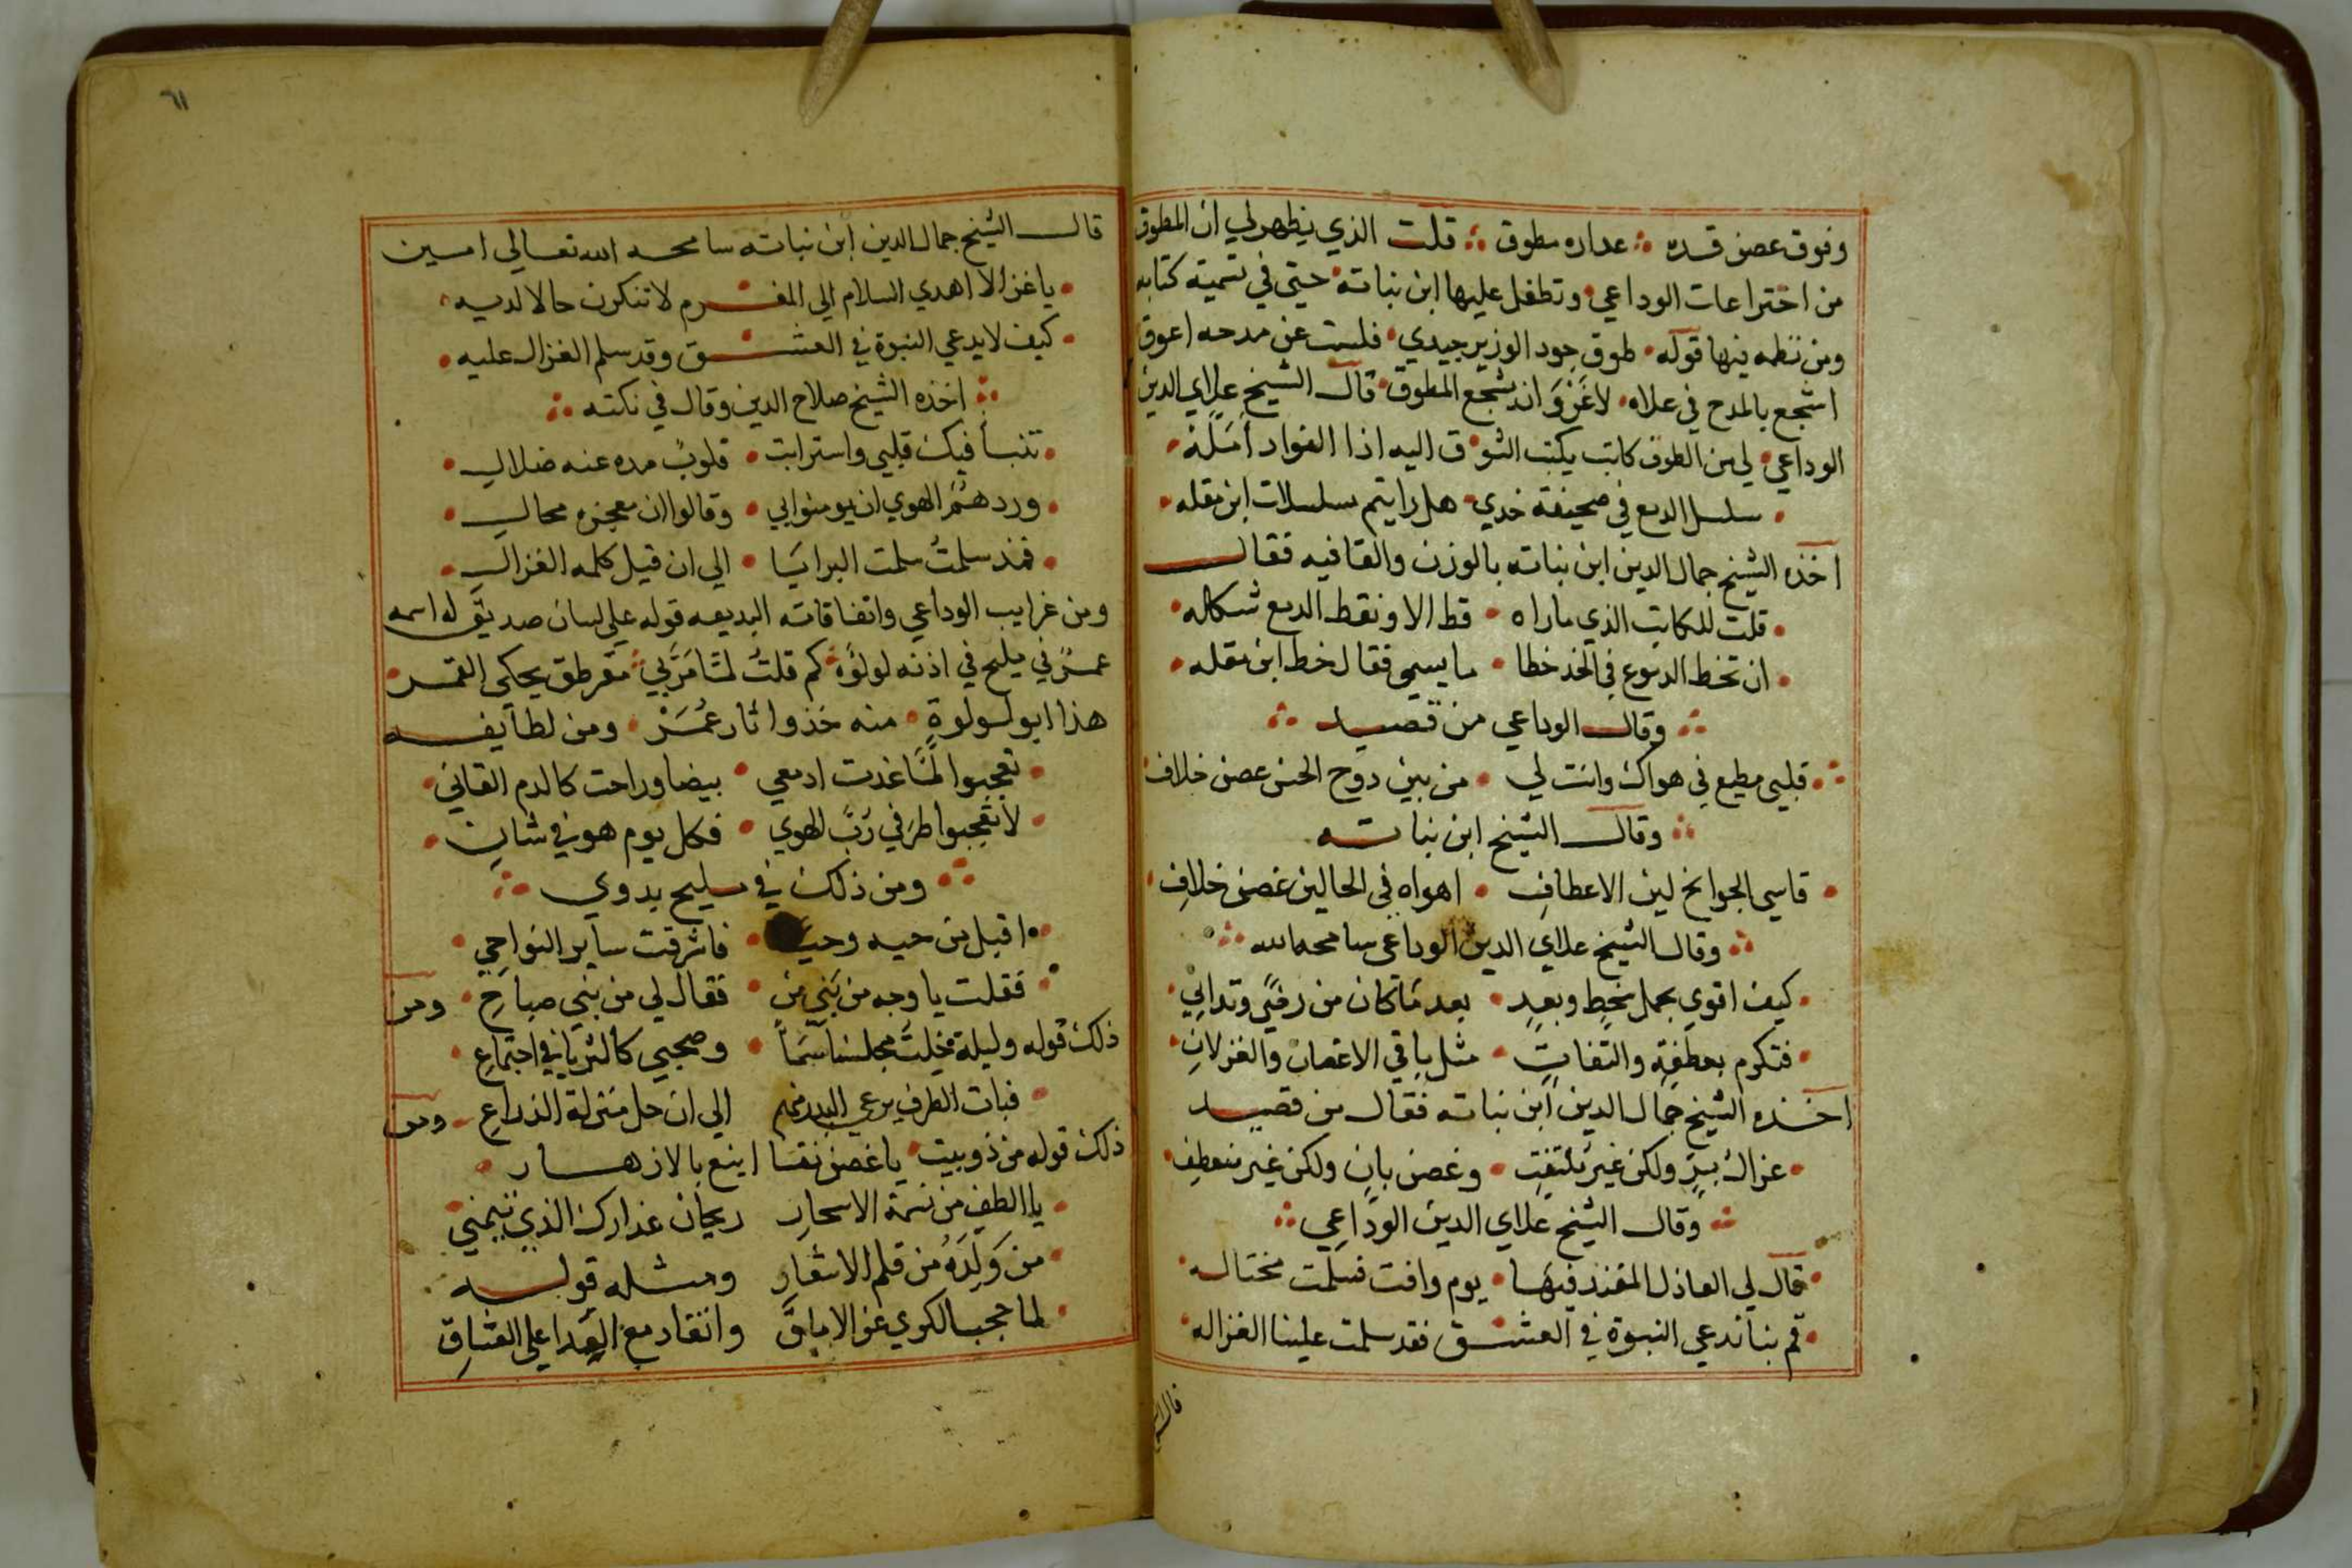 وفوق غصن قده ∴ عداره مطوق ∴ قلت الذي يظهر لي ان المطوق
من اختراعات الوداعي وتطفل عليها ابن نباتة حتى في تسمية كتابه
ومن نظمه فيها قوله طوق جود الوزير جيدي فلست عن مدحه اعوق
اسجع بالمدح في علاه لا غَرْوَ ان سجع المطوق قال الشيخ علاي الدين
الوداعي لي من الطرف كاتب يكتب الشوق اليه اذا الفواد اَمَلَّهُ
سلسل الدمع في صحيفة خدي هل رايتم سلسلات ابن مقله
اخذه الشيخ جمال الدين ابن نباته بالوزن والقافيه فقال
قلت للكاتب الذي ماراه قط الا ونقط الدمع شكله
ان تخط الدموع في الخد خطا ما يسمى فقال خط ابن مقله
∴ وقال الوداعي من قصيد ∴
قلبي مطيع في هواك وانت لي من بين دوح الحسن غصن خلاف
∴ وقال الشيخ ابن نباته
قاسي الجوانح لين الاعطافِ اهواه في الحالين غصن خلافِ
∴ وقال الشيخ علاي الدين الوداعي سامحه الله ∴
كيف اقوي بحمل سخط وبعدِ بعد ما كان من رضًي وتداني
فتكرم بعطفةٍ والتفاتٍ مثل باقي الاغصان والغزلانِ
اخذه الشيخ جمال الدين ابن نباته فقال من قصيد
غزال ولكن غير ملتفتٍ وغصن بانٍ ولكن غير منعطفِ
∴ وقال الشيخ علاي الدين الوداعي ∴
قال لي العاذل المفند فيها يوم وافت فسلمت مختاله
قم بنا ندعي النبوة في العشق فقد سلمت علينا الغزاله
قال الشيخ
٦١
قال الشيخ جمال الدين ابن نباته سامحه الله تعالي امين
يا غزالا اهدي السلام الي المغرم لا تنكرن حالا لديه
كيف لا يدعي النبوة في العشق وقد سلم الغزال عليه
∴ اخذه الشيخ صلاح الدين وقال في نكته ∴
تنبا فيك قلبي واسترابت قلوب مده عنه ضلال
ورد هتم الهوي ان يومنوا بي وقالوا ان معجزه محال
فمذ سلمتُ سلمت البرايَا الي ان قيل كلمه الغزال
ومن غرايب الوداعي واتفاقاته البديعه قوله علي لسان صديق له اسمه
عمرٌ في مليح في اذنه لولوة كم قلتُ لمَّا مَرَّ بي مقرطق يحكي القمر
هذا ابو لولوةٍ منه خذوا ثار عُمَرْ ومن لطايفه
تعجبوا لمَّا غدت ادمعي بيضا وراحت كالدم القاني
لا تعجبوا طرفي رَبُّ الهوي فكل يوم هو في شانِ
∴ ومن ذلك في مليح بدوي ∴
اقبل من حيه وحيا فاشرقت ساير النواحي
فقلت يا وجه من بَني مَنْ فقال لي من بني صباحِ ومن
ذلك قوله وليلة خيلت مجلسنا سَمَاً وصحبي كالثريا في اجتماعِ
فبات الطرف يرعي البدر منهم الي ان حل منزلة الذراعِ ومن
ذلك قوله من ذوبيت يا غصن نقا اينع بالازهار
يا الطف من نسمة الاسحارِ ريحان عذارك الذي تيمني
من وَلَّدَهُ من قلم الاشعارِ ومثله قوله
لما حجب الكري عن الاماقَ وانقاد مع العِدا علي العشاقِ